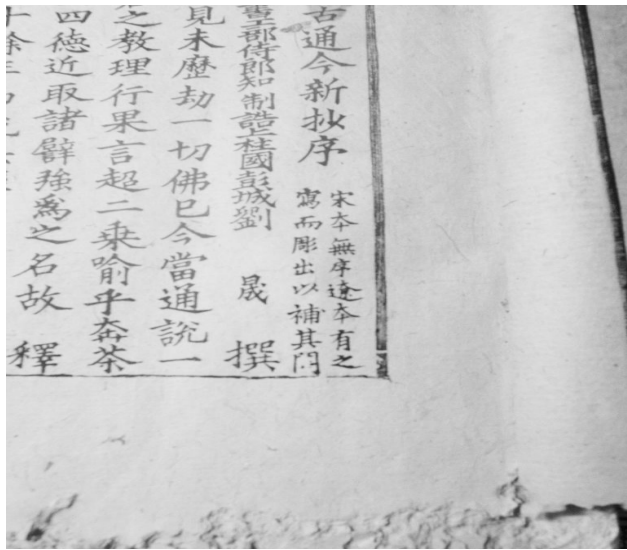 古通今新抄序
宋本無序遼本有之
寫而彫出以補其闕
部侍郎知制誥上柱國彭城劉 晟 撰
見未歷劫一切佛已今當通說一
之教理行果言超二乘喻乎奔茶
四德近取諸譬強為之名故 釋